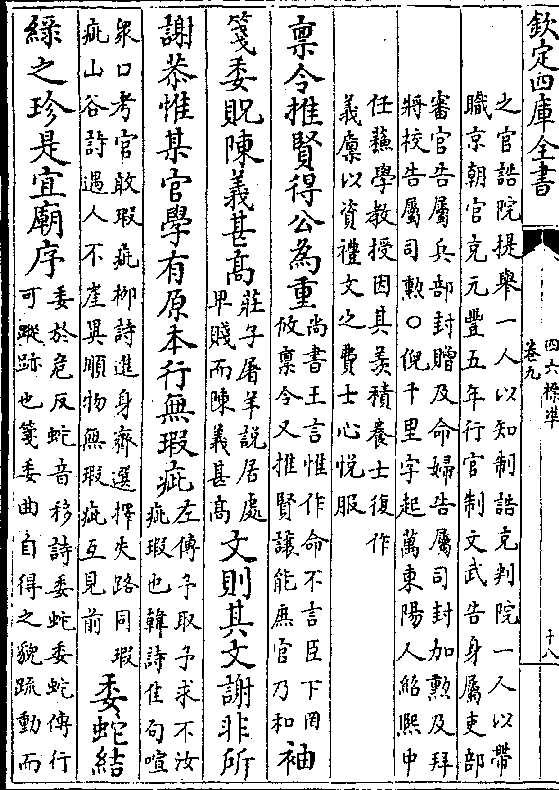 欽定四庫全書
四六標準
卷九
十八
之官誥院提舉一人以知制誥充判院一人以帶
職京朝官充元豐五年行官制文武告身屬吏部
審官告屬兵部封贈及命婦告屬司封加勲及拜
將校告屬司勲○倪千里字起萬東陽人紹熙中
任蘓學教授因其羨積養士復作
義廪以資禮文之費士心悦服
禀令推賢得公為重
尚書王言惟作命不言臣下罔
攸禀令又推賢讓能庶官乃和
袖
箋委貺陳義甚髙
莊子屠羊説居處
卑賤而陳義甚髙
文則其文謝非所
謝恭惟某官學有原本行無瑕疵
左傳予取予求不汝
疵瑕也韓詩佳句喧
衆口考官敢瑕疵柳詩進身齊選擇失路同瑕
疵山谷詩遇人不崖異順物無瑕疵互見前
委蛇結
綠之珍是宜廟序
委於危反蛇音移詩委蛇委蛇傳行
可蹤跡也箋委曲自得之貌疏動而